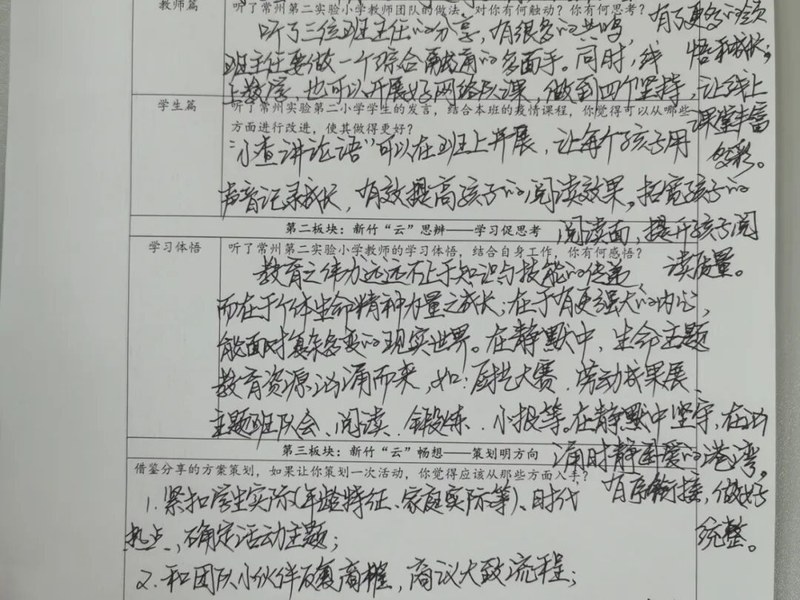 教师篇
听了常州第二实验小学教师团队的做法，对你有何触动？你有何思考？
听了三位班主任的分享，有很多的共鸣，有了更多的领
班主任要做一个综合融通的多面手。同时，线 悟和成长；
上教学，也可以开展好网络队课，做到四个坚持，让线上
学生篇
听了常州实验第二小学学生的发言，结合本班的疫情课程，你觉得可以从哪些 课堂丰富
方面进行改进，使其做得更好？
“小查讲论语”可以在班上开展，让每个孩子用 多彩。
声音记录成长，有效提高孩子的阅读效果。拓宽孩子的
第二板块：新竹“云”思辨——学习促思考
阅读面，提升孩子阅
学习体悟
听了常州第二实验小学教师的学习体悟，结合自身工作，你有何感悟？
读质量。
教育之伟力远远不止于知识与技能的传递，
而在于个体生命精神力量之成长；在于有更强大的内心，
能面对复杂多变的现实世界。在静默中，生命主题
教育资源汹涌而来，如：厨艺大赛、劳动成果展、
主题班队会、阅读、锻炼、小报等。在静默中坚守，在汹
第三板块：新竹“云”畅想——策划明方向
涌时静固爱的港湾。
借鉴分享的方案策划，如果让你策划一次活动，你觉得应该从那些方面入手？
1.紧扣学生实际（年龄特征、家庭实际等）、时代 有序衔接，做好
热点，确定活动主题； 统整。
2.和团队小伙伴反复商榷，商议大致流程；